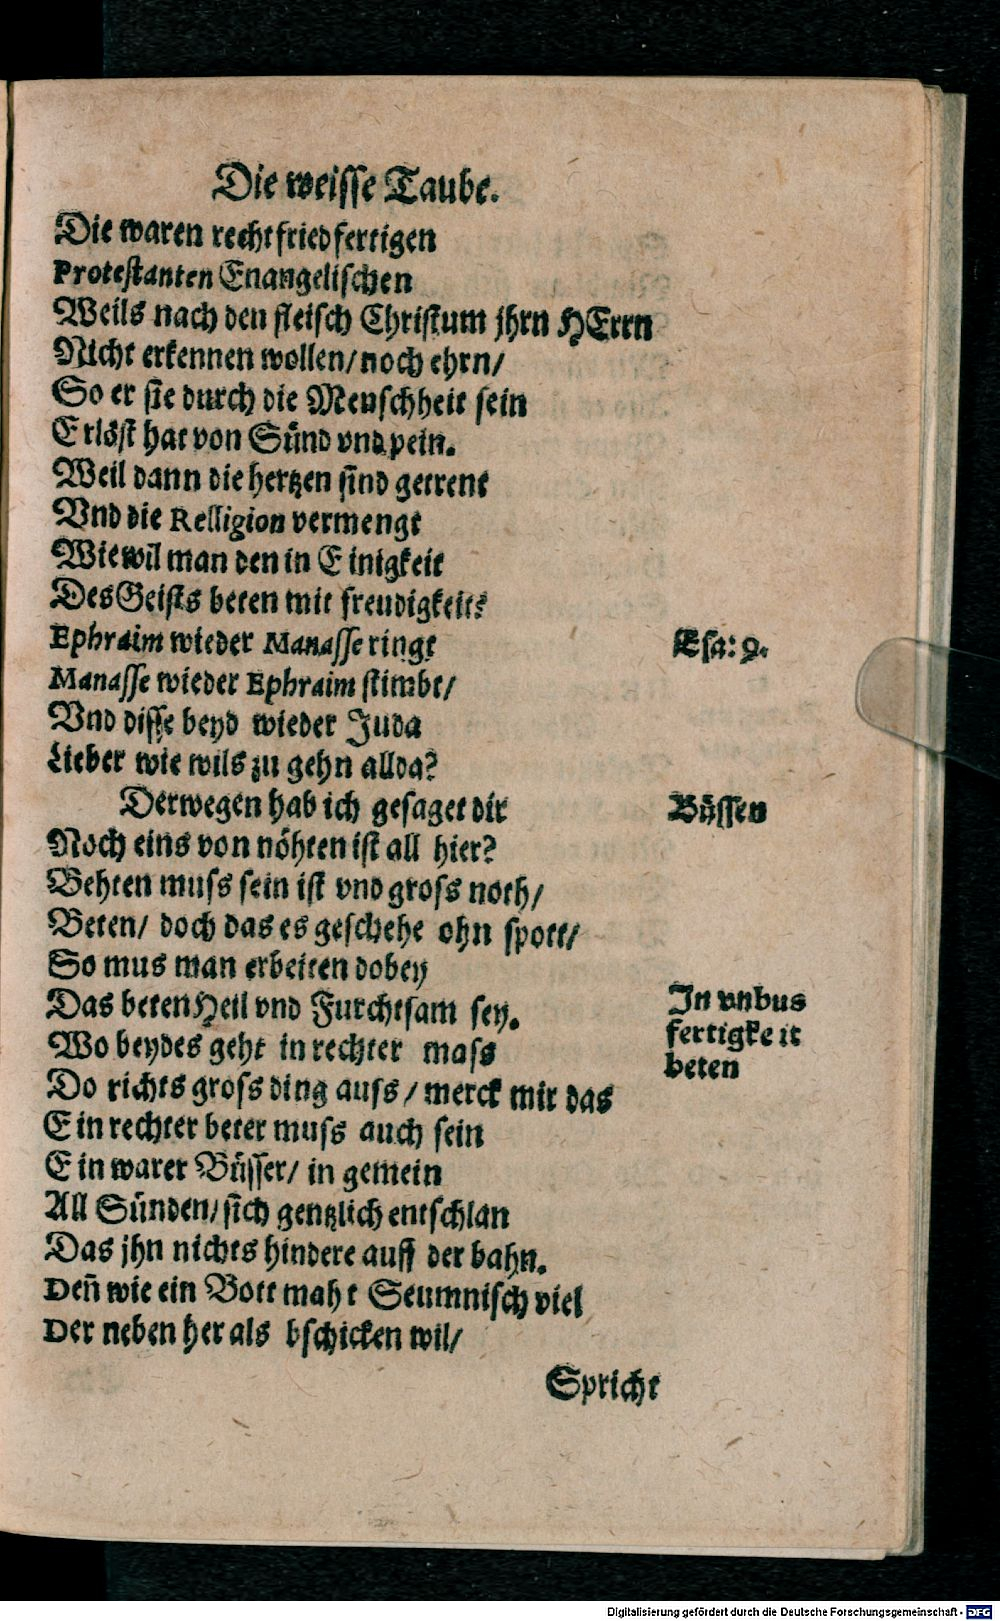 Die weisse Taube.
Die waren recht friedfertigen
Protestanten Enangelischen
Weils nach den fleisch Christum jhrn HErrn
Nicht erkennen wollen/ noch ehrn/
So er sie durch die Menschheit sein
Erlöst hat von Sünd vnd pein.
Weil dann die hertzen sind getrent
Vnd die Relligion vermengt
Wie wil man den in Einigkeit
Des Geists beten mit freudigkeit?
Ephraim wieder Manasse ringt
Esa: 9.
Manasse wieder Ephraim stimbt/
Vnd disse beyd wieder Juda
Lieber wie wils zu gehn allda?
Derwegen hab ich gesaget dir
Büssen
Noch eins von nöhten ist all hier?
Behten muss sein ist vnd gross noth/
Beten/ doch das es geschehe ohn spott/
So mus man erbeiten dobey
Das beten Heil vnd Furchtsam sey.
In vnbus
fertigkeit
beten
Wo beydes geht in rechter mass
Do richts gross ding auss/ merck mir das
Ein rechter beter muss auch sein
Ein warer Büsser/ in gemein
All Sünden/ sich gentzlich entschlan
Das jhn nichts hindere auff der bahn.
Den̄ wie ein Bott maht Seumnisch viel
Der neben her als bschicken wil/
Spricht
Digitalisierung gefördert durch die Deutsche Forschungsgemeinschaft - DFG